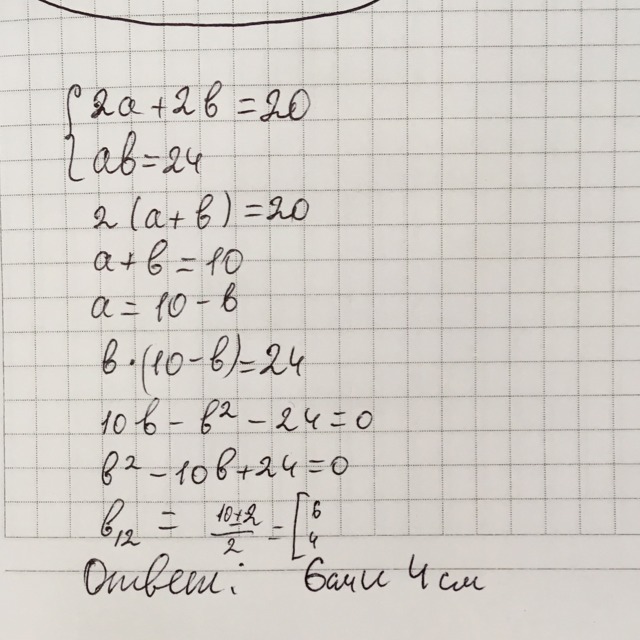 { 2a + 2b = 20
{ ab = 24
2 (a + b) = 20
a + b = 10
a = 10 - b
b · (10 - b) = 24
10b - b² - 24 = 0
b² - 10b + 24 = 0
b₁₂ = (10 ± 2)/2 = [ 6 4
Ответ: 6 см и 4 см